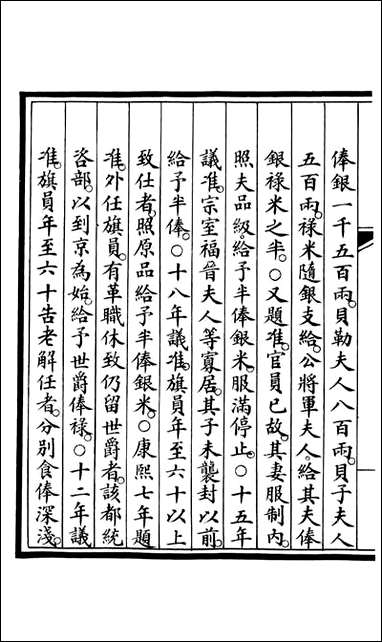 俸銀一千五百兩。貝勒夫人八百兩。貝子夫人
五百兩。祿米隨銀支給。公將軍夫人。給其夫俸
銀祿米之半。○又題准。官員已故。其妻服制內。
照夫品級。給予半俸銀米。服滿停止。○十五年
議准。宗室福晉夫人等寡居。其子未襲封以前。
給予半俸。○十八年議准。旗員年至六十以上
致仕者。照原品給予半俸銀米。○康熙七年題
准。外任旗員。有革職休致仍留世爵者。該都統
咨部。以到京為始。給予世爵俸祿。○十二年議
准。旗員年至六十告老解任者。分別食俸深淺。